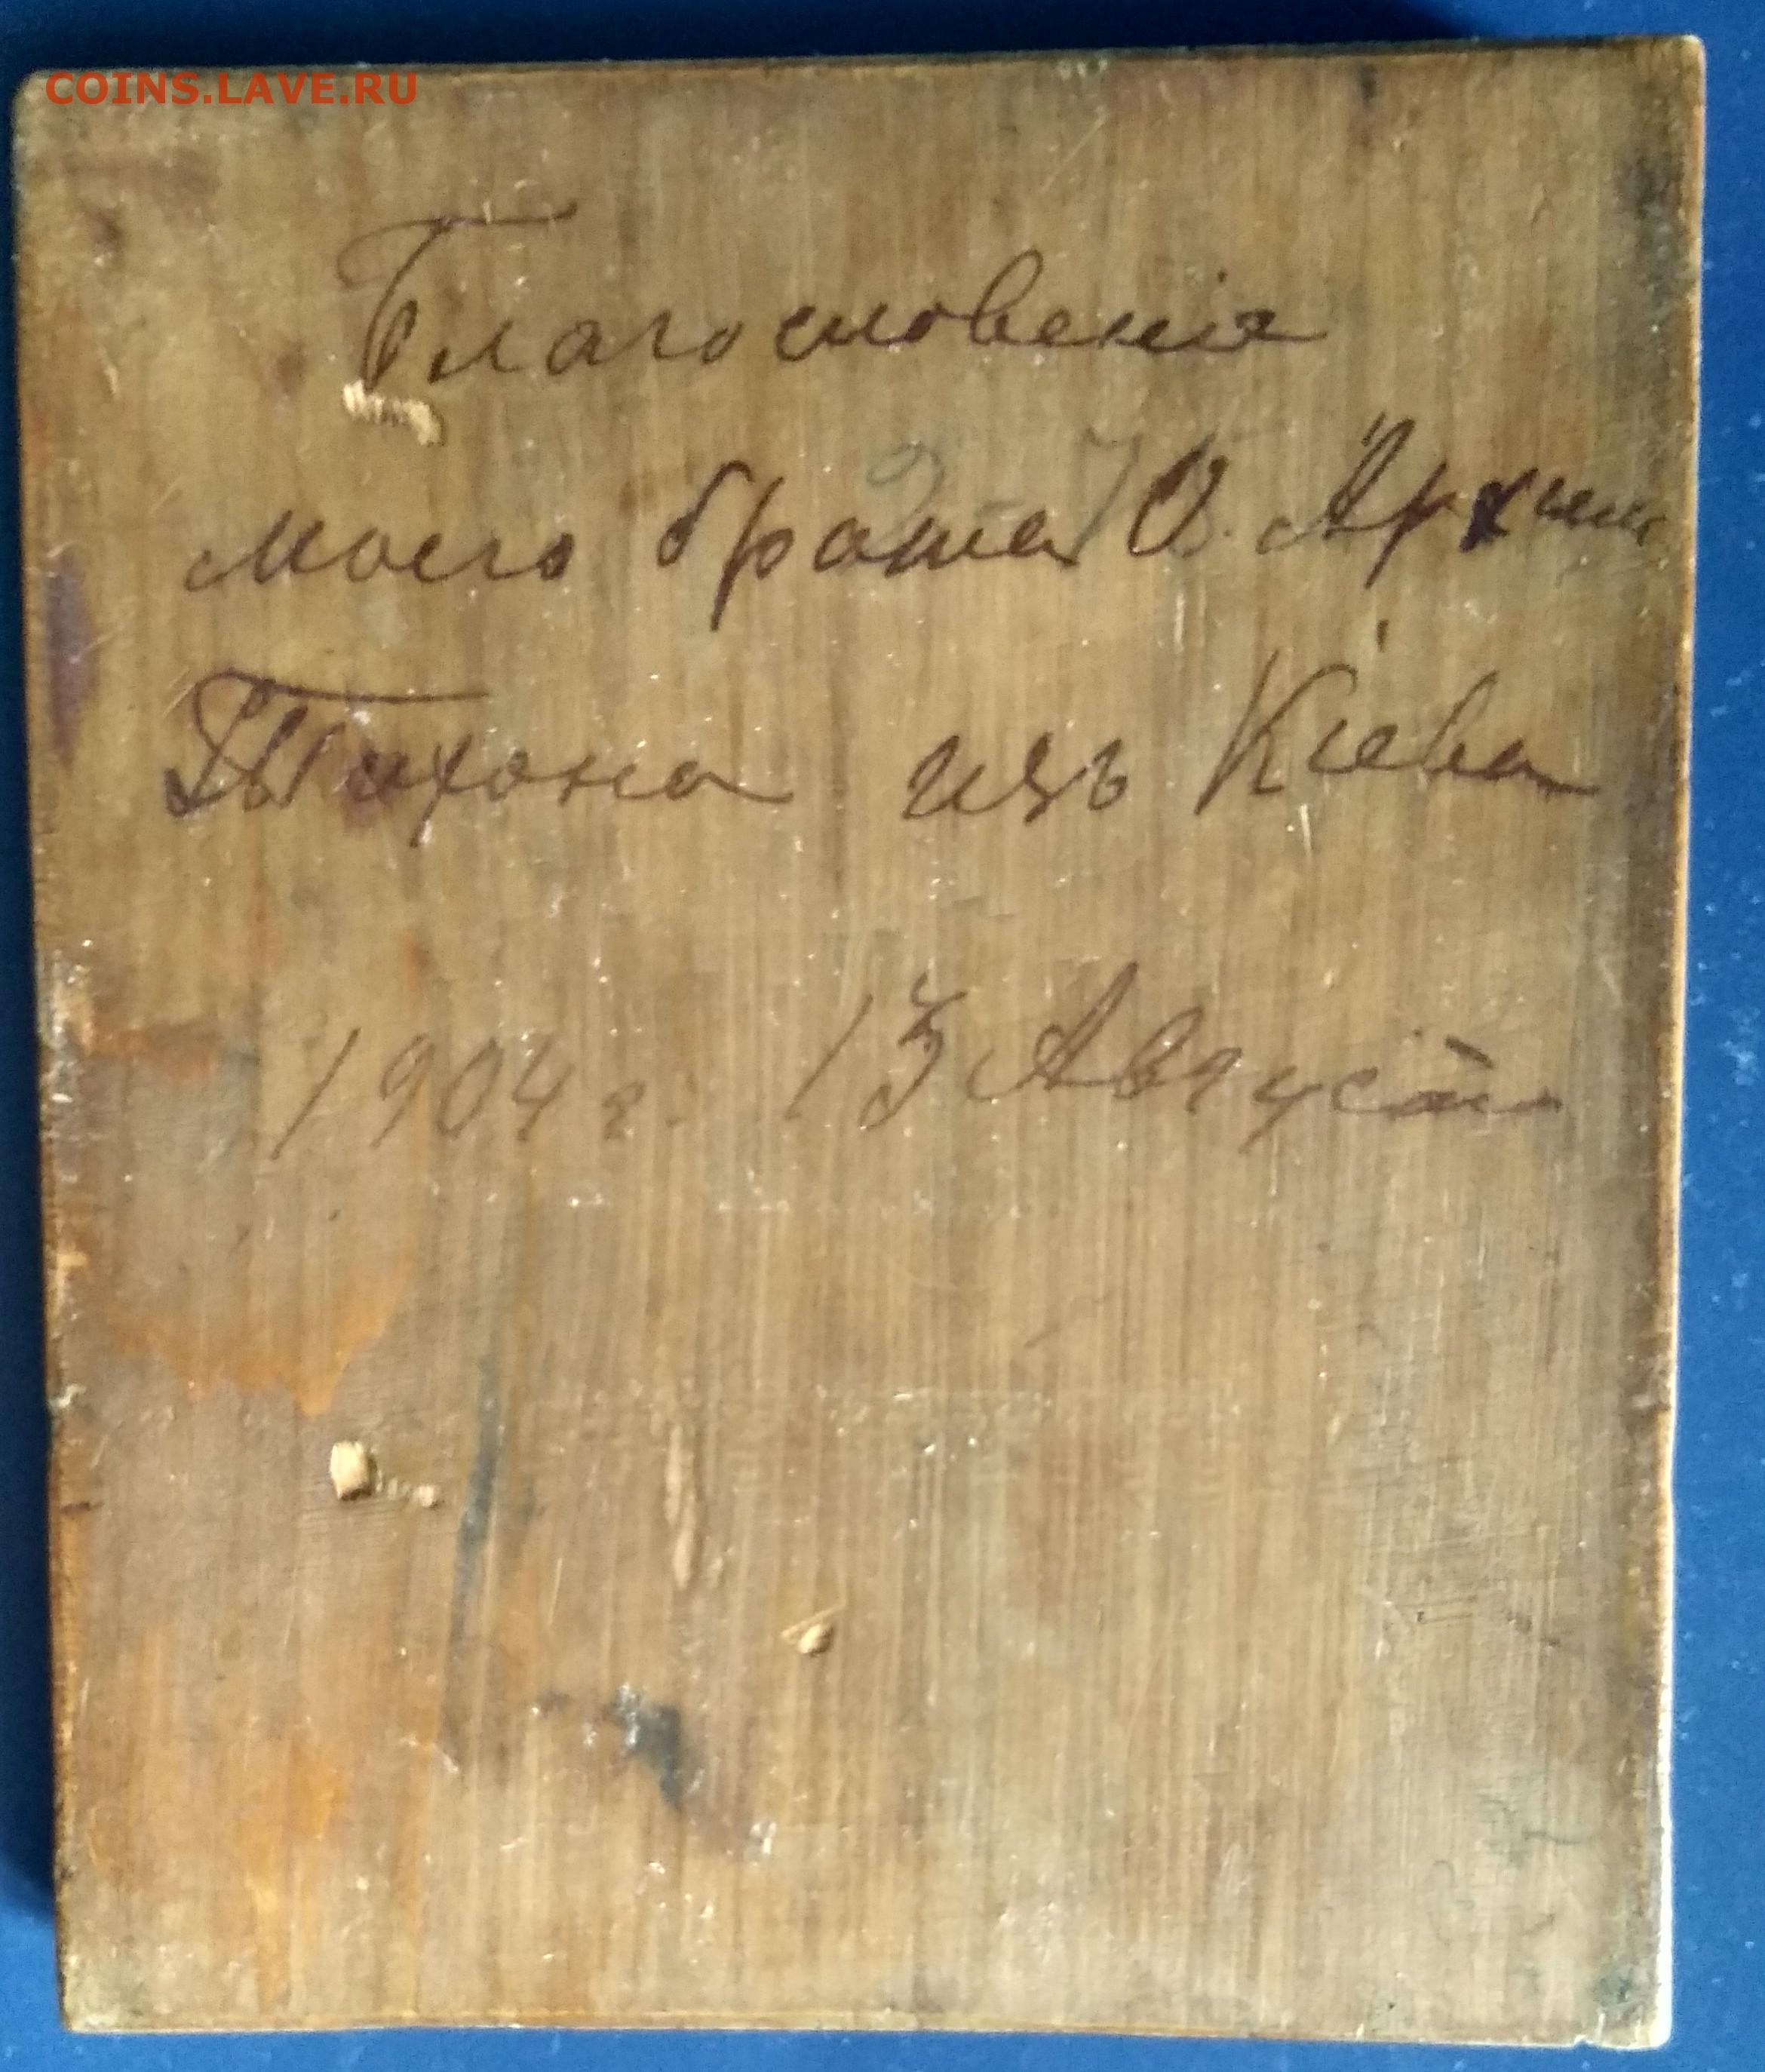 COINS.LAVE.RU
Благословенiя
моего брата О. Архим
Тихона изъ Кіева
1904 г. 15 Август